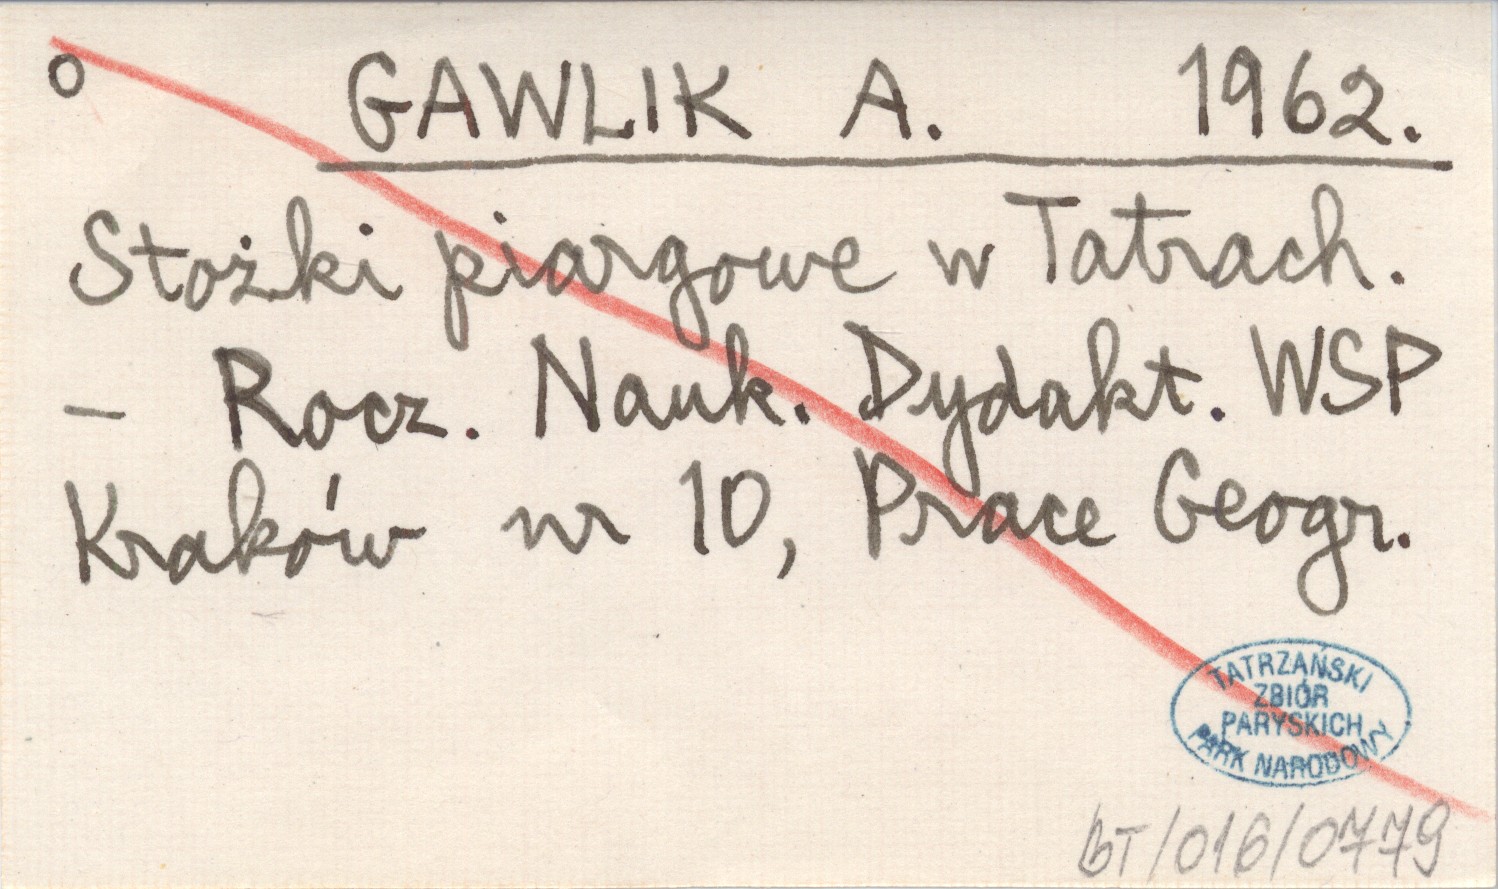 o GAWLIK A. 1962.
Stożki piargowe w Tatrach.
– Rocz. Nauk. Dydakt. WSP
Kraków nr 10, Prace Geogr.
TATRZAŃSKI
ZBIÓR
PARYSKICH
PARK NARODOWY
BT/016/0779